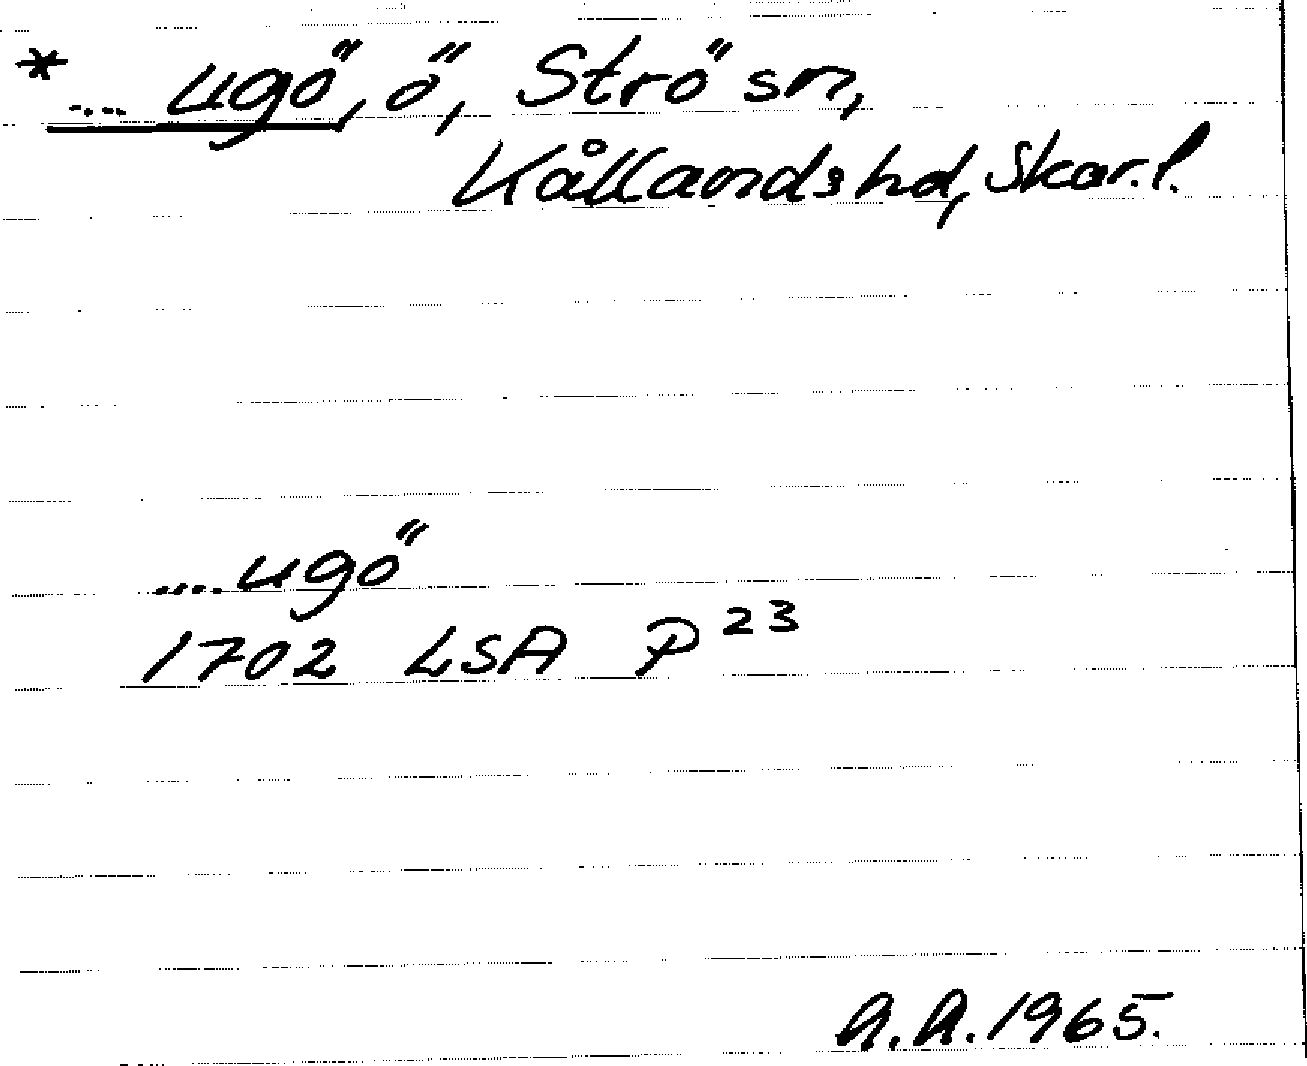 * .... ugö, ö, Strö sn,
Kållands hd, Skar. l.
.... ugö
1702 LSA P 23
A.A. 1965.